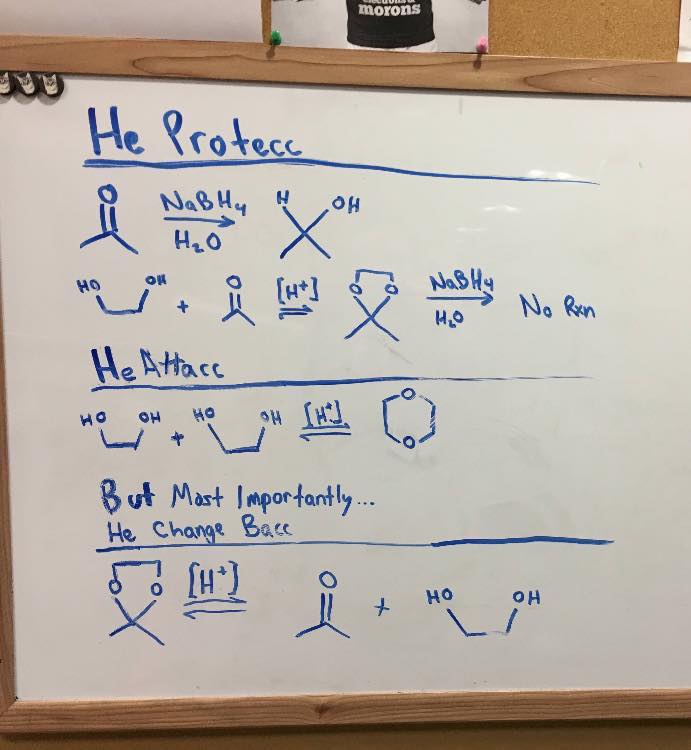 elections of
morons
He Protecc
O NaBH4 H OH
H2O
HO OH + O [H+] O O NaBH4 No Rxn
H2O
He Attacc
HO OH + HO OH [H+] O O
But Most Importantly...
He Change Bacc
O O [H+] O + HO OH